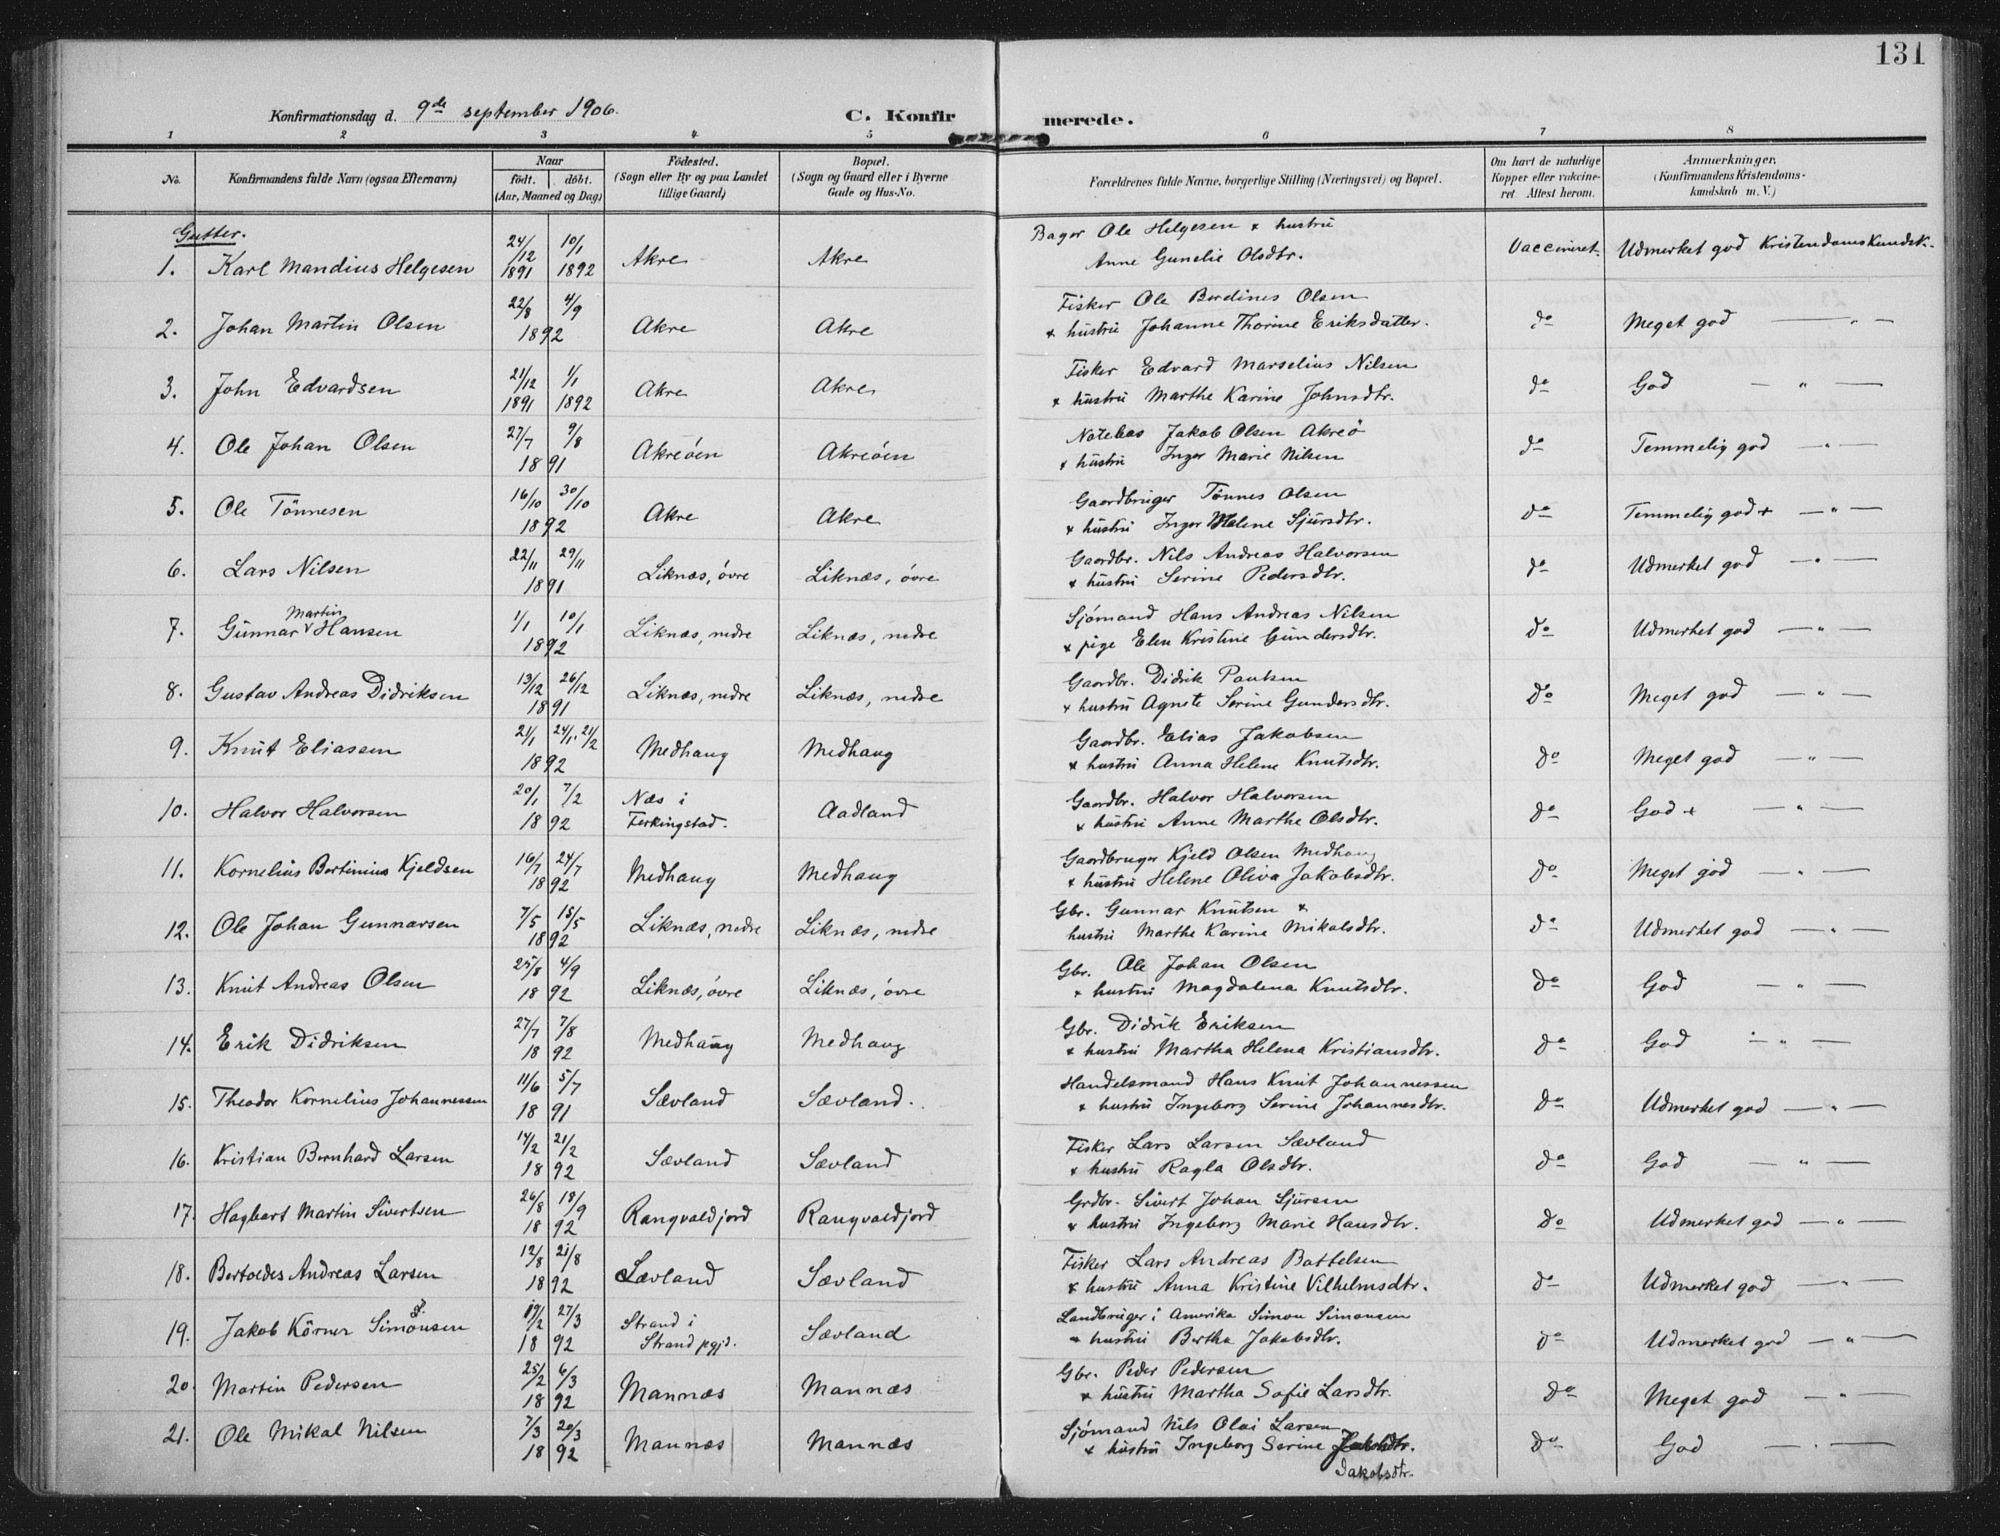 131
Konfirmationsdag d. 9de september 1906.
C. Konfirmerede.
1 2 3 4 5 6 7 8
No.
Konfirmandens fulde Navn (ogsaa Efternavn)
Naar
födt. döbt.
(Aar, Maaned og Dag)
Födested.
(Sogn eller By og paa Landet
tillige Gaard)
Bopæl.
(Sogn og Gaard eller i Byerne
Gade og Hus-No.
Forældrenes fulde Navne, borgerlige Stilling (Næringsvei) og Bopæl.
Om havt de naturlige
Kopper eller vakcine-
ret. Attest herom.
Anmerkninger.
(Konfirmandens Kristendoms-
kundskab m. V.)
Gutter.
1. Karl Mandius Helgesen 24/12 1891 10/1 1892 Akre Akre
Bager Ole Helgesen + hustru
Anne Gunelie Olsdtr.
Vaccineret. Udmerket god Kristendomskundsk.
2. Johan Martin Olsen 22/8 4/9 1892 Akre Akre
Fisker Ole Berdines Olsen
+ hustru Johanne Thorine Eriksdatter.
do Meget god — " —
3. John Edvardsen 21/12 1891 1/1 1892 Akre Akre
Fisker Edvard Marselius Nilsen
+ hustru Marthe Karine Johnsdtr.
do God — " —
4. Ole Johan Olsen 27/7 9/8 1891 Akreöen Akreöen
Notebas Jakob Olsen Akreö
+ hustru Inger Marie Nilsen
do Temmelig god — " —
5. Ole Tönnesen 16/10 30/10 1892 Akre Akre
Gaardbruger Tönnes Olsen
+ hustru Inger Helene Sjursdtr.
do Temmelig god + — " —
6. Lars Nilsen 22/11 29/11 1891 Liknæs, övre Liknæs, övre
Gaardbr. Nils Andreas Halvorsen
+ hustru Serine Pedersdtr.
do Udmerket god — " —
7. Gunnar Martin Hansen 1/1 10/1 1892 Liknæs, nedre Liknæs, nedre
Sjömand Hans Andreas Nilsen
+ pige Elen Kristine Gundersdtr.
do Udmerket god — " —
8. Gustav Andreas Didriksen 13/12 26/12 1891 Liknæs, nedre Liknæs, nedre
Gaardbr. Didrik Paulsen
+ hustru Agnete Serine Gundersdtr.
do Meget god — " —
9. Knut Eliassen 21/1 24/1. 21/2 1892 Medhaug Medhaug
Gaardbr. Elias Jakobsen
+ hustru Anna Helene Knutsdtr.
do Meget god — " —
10. Halvor Halvorsen 20/1 7/2 1892 Næs i Ferkingstad. Aadland
Gaardbr. Halvor Halvorsen
+ hustru Anne Marthe Olsdtr.
do God + — " —
11. Kornelius Bertinius Kjeldsen 16/7 24/7 1892 Medhaug Medhaug
Gaardbruger Kjeld Olsen Medhaug
+ hustru Helene Oliva Jakobsdtr.
do Meget god — " —
12. Ole Johan Gunnarsen 7/5 15/5 1892 Liknæs, nedre Liknæs, nedre
Gbr. Gunnar Knutsen +
hustru Marthe Karine Mikalsdtr.
do Udmerket god — " —
13. Knut Andreas Olsen 25/8 4/9 1892 Liknæs, övre Liknæs, övre
Gbr. Ole Johan Olsen
+ hustru Magdalena Knutsdtr.
do God — " —
14. Erik Didriksen 27/7 7/8 1892 Medhaug Medhaug
Gbr. Didrik Eriksen
+ hustru Martha Helena Kristiansdtr.
do God — " —
15. Theodor Kornelius Johannessen 11/6 5/7 1891 Sævland Sævland.
Handelsmand Hans Knut Johannessen
+ hustru Ingeborg Serine Johannesdtr.
do Udmerket god — " —
16. Kristian Bernhard Larsen 14/2 21/2 1892 Sævland Sævland
Fisker Lars Larsen Sævland
+ hustru Ragla Olsdtr.
do God — " —
17. Hagbart Martin Sivertsen 26/8 18/9 1892 Rangvaldjord Rangvaldjord
Grdbr. Sivert Johan Sjursen
+ hustru Ingeborg Marie Hansdtr.
do Udmerket god — " —
18. Bertoedes Andreas Larsen 12/8 21/8 1892 Sævland Sævland
Fisker Lars Andreas Bottelsen
+ hustru Anna Kristine Vilhelmsdtr.
do Udmerket god — " —
19. Jakob Körner Simonsen 19/2 27/3 1892 Strand i Strand pgjd. Sævland
Landbruger i Amerika Simon Simonsen
+ hustru Bertha Jakobsdtr.
do Udmerket god — " —
20. Martin Pedersen 25/2 6/3 1892 Mannæs Mannæs
Gbr. Peder Pedersen
+ hustru Martha Sofie Larsdtr.
do Meget god — " —
21. Ole Mikal Nilsen 7/3 20/3 1892 Mannæs Mannæs
Sjömand Nils Olai Larsen
+ hustru Ingeborg Serine
Jakobsdtr.
do God — . —